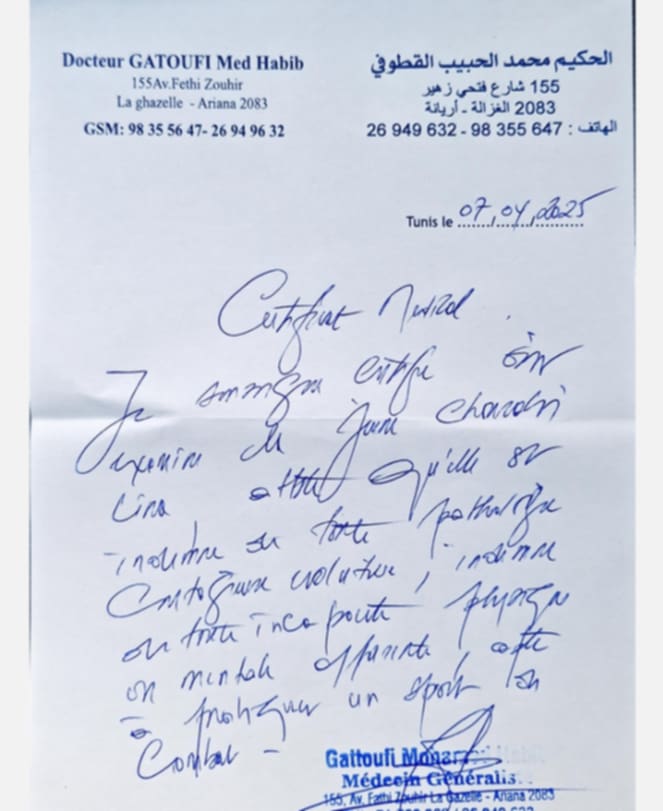 Docteur GATOUFI Med Habib
155Av.Fethi Zouhir
La ghazelle - Ariana 2083
GSM: 98 35 56 47- 26 94 96 32
الحكيم محمد الحبيب القطوفي
155 شارع فتحي زهير
2083 الغزالة - أريانة
الهاتف : 98 355 647 - 26 949 632
Tunis le 07,04,2025
Certificat Medical
Je soussigné certifie avoir
examiné la jeune
Lina atteste qu'elle est
indemne de toute pathologie
Contagieuse évolutive, indemne
de toute incapacité physique
ou mentale apparente, apte
à pratiquer un sport de
Combat -
Gattoufi Mohamed Habib
Médecin Généralis
155, Av. Fethi Zouhir La Gazelle - Ariana 2083